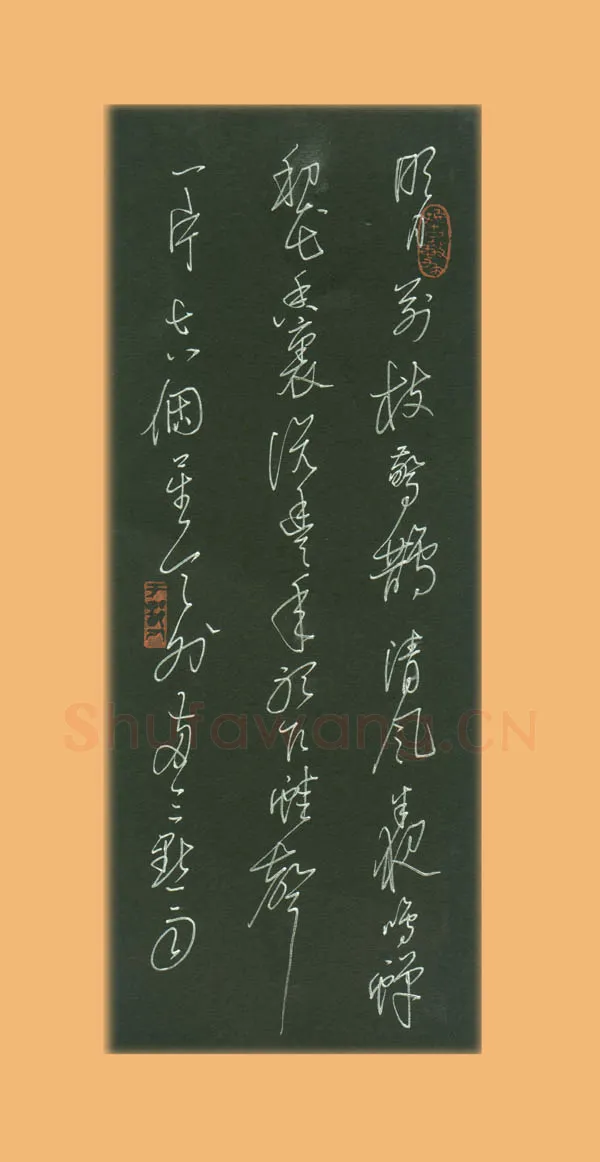 明月別枝驚鵲清風半夜鳴蟬
稻花香裏說豐年聽取蛙聲
一片七八個星天外兩三點雨
Shufawang.CN